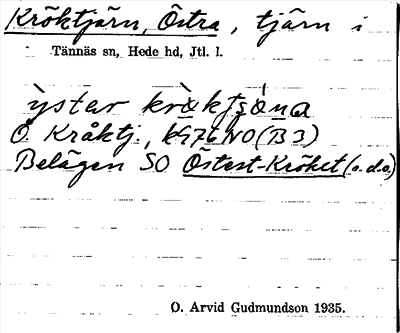 Kröktjärn, Östra, tjärn i
Tännäs sn, Hede hd, Jtl. l.
Ö Kråktj., k976NO(B3)
Belägen SO Östest-Kröket (s.d.o.)
O. Arvid Gudmundson 1935.